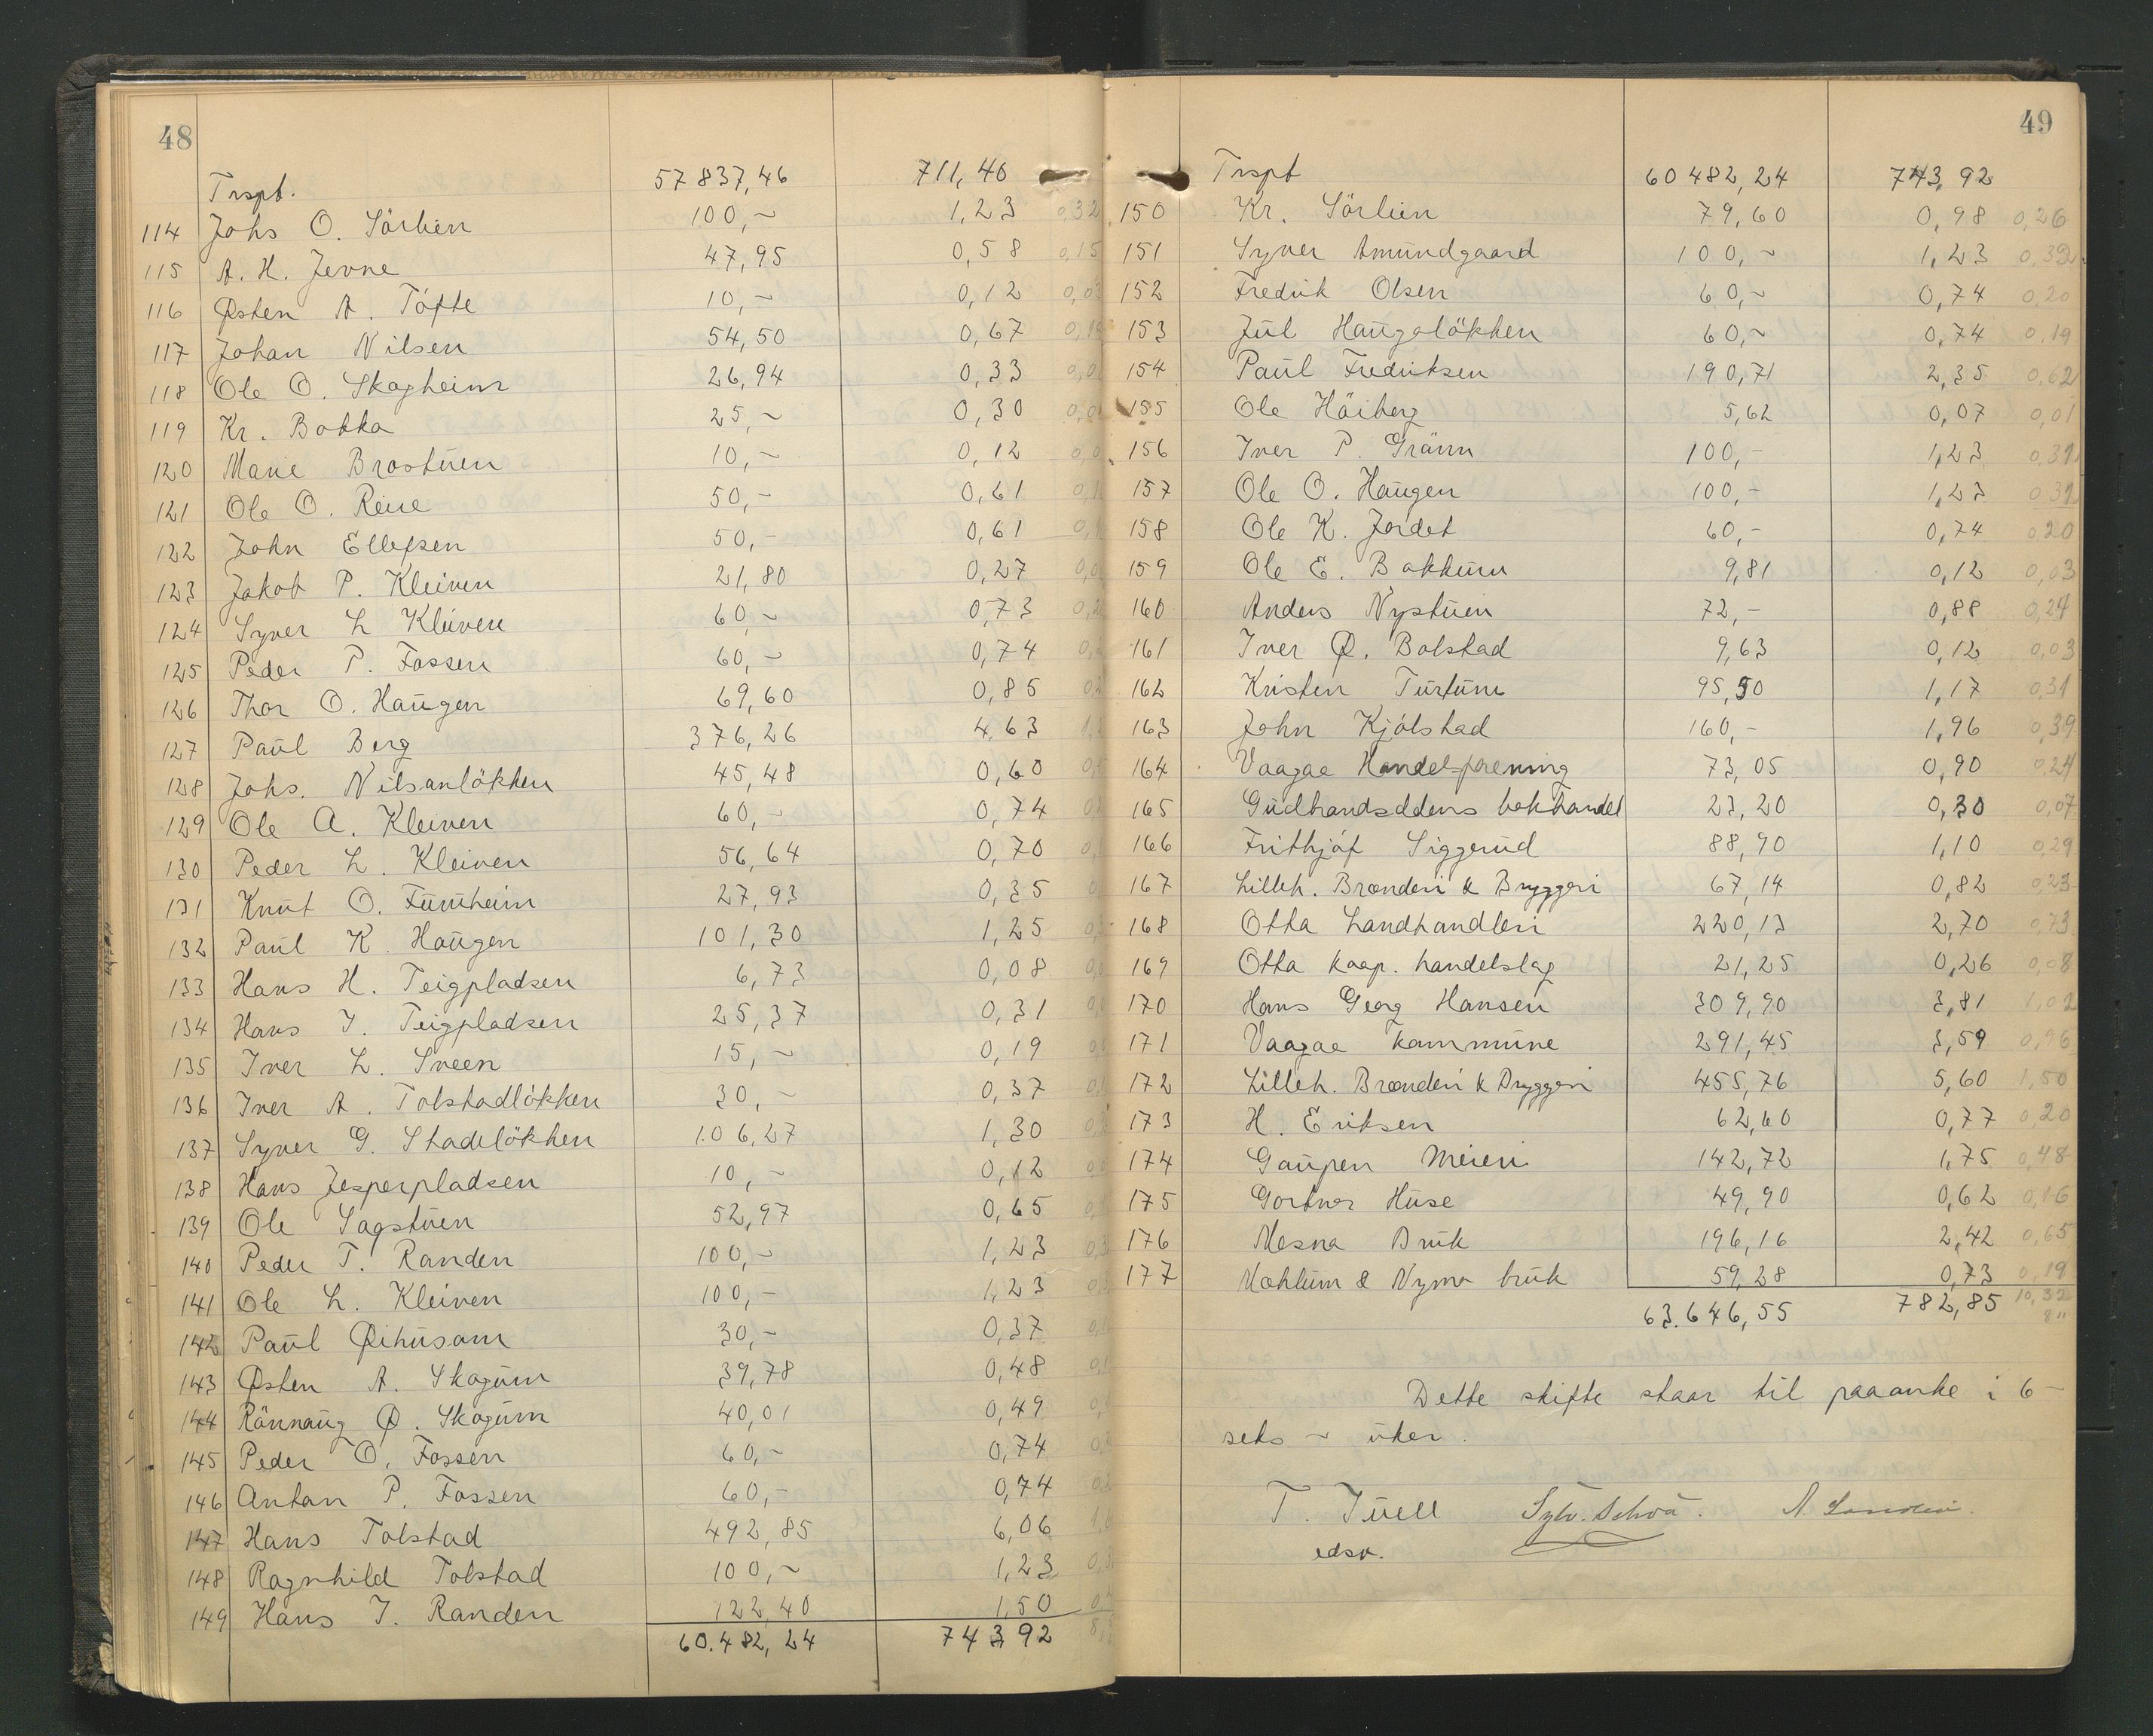 48
Trspt. 57837,46 711,40
114 Johs O. Sörlien 100,~ 1,23 0,32
115 A. H. Jevne 47,95 0,58 0,15
116 Østen A. Töfte 10,~ 0,12 0,03
117 Johan Nilsen 54,50 0,67
118 Ole O. Skogheim 26,94 0,33
119 Kr. Bakka 25,~ 0,30
120 Marie Brostuen 10,~ 0,12
121 Ole O. Reire 50,- 0,61
122 John Ellefsen 50,- 0,61
123 Jakob P. Kleiven 21,80 0,27
124 Syver L Kleiven 60,~ 0,73
125 Peder P. Fossen 60,~ 0,74
126 Thor O. Haugen 69,60 0,85
127 Paul Berg 376,26 4,63
128 Johs. Nilsanlökken 45,48 0,60
129 Ole A. Kleiven 60,- 0,74
130 Peder L. Kleiven 56,64 0,70
131 Knut O. Furuheim 27,93 0,35
132 Paul K. Haugen 101,30 1,25
133 Hans H. Teigpladsen 6,73 0,08
134 Hans J. Teigpladsen 25,37 0,31
135 Iver L. Sveen 15,~ 0,19
136 Iver A. Tolstadlökken 30,~ 0,37
137 Syver G. Stadelökken 106,27 1,30
138 Hans Jesperpladsen 10,~ 0,12
139 Ole Sagstuen 52,97 0,65
140 Peder T. Randen 100,~ 1,23
141 Ole L. Kleiven 100,- 1,23
142 Paul Øihusom 30,- 0,37
143 Østen A. Skogum 39,78 0,48
144 Rönnaug Ø. Skogum 40,01 0,49
145 Peder O. Fossen 60,~ 0,74
146 Anton P. Fossen 60,- 0,74
147 Hans Tolstad 492,85 6,06
148 Ragnhild Tolstad 100,~ 1,23
149 Hans J. Randen 122,40 1,50
60.482,24 743,92
49
Trspt 60482,24 743,92
150 Kr. Sörlien 79,60 0,98 0,26
151 Syver Amundgaard 100,~ 1,23 0,32
152 Fredrik Olsen 60,~ 0,74 0,20
153 Jul Haugslökken 60,~ 0,74 0,19
154 Paul Fredriksen 190,71 2,35 0,62
155 Ole Höiberg 5,62 0,07 0,01
156 Iver P. Gränn 100,- 1,23 0,31
157 Ole O. Haugen 100,- 1,23 0,31
158 Ole K. Jordet 60,- 0,74 0,20
159 Ole E. Bakkum 9,81 0,12 0,03
160 Anders Nystuen 72,- 0,88 0,24
161 Iver Ø. Bolstad 9,63 0,12 0,03
162 Kristen Turtum 95,50 1,17 0,31
163 John Kjölstad 160,- 1,96 0,39
164 Vaagaa Handelsforening 73,05 0,90 0,24
165 Gudbrandsdølens bokhandel 23,20 0,30 0,07
166 Frithjóf Siggerud 88,90 1,10 0,29
167 Lilleh. Brænderi & Bryggeri 67,14 0,82 0,23
168 Otta Landhandleri 220,13 2,70 0,73
169 Otta koop. handelslag 21,25 0,26 0,08
170 Hans Georg Hansen 309,90 3,81 1,02
171 Vaagaa kommune 291,45 3,59 0,96
172 Lilleh. Brænderi & Bryggeri 455,76 5,60 1,50
173 H. Eriksen 62,60 0,77 0,20
174 Gaupen Meieri 142,72 1,75 0,48
175 Gartner Huse 49,90 0,62 0,16
176 Mesna Bruk 196,16 2,42 0,65
177 Mæhlum & Nyma bruk 59,28 0,73 0,19
63.646,55 782,85 10,32
8"
Dette skifte staar til paaanke i 6 -
seks ~ uker.
T. Juell
edsv.